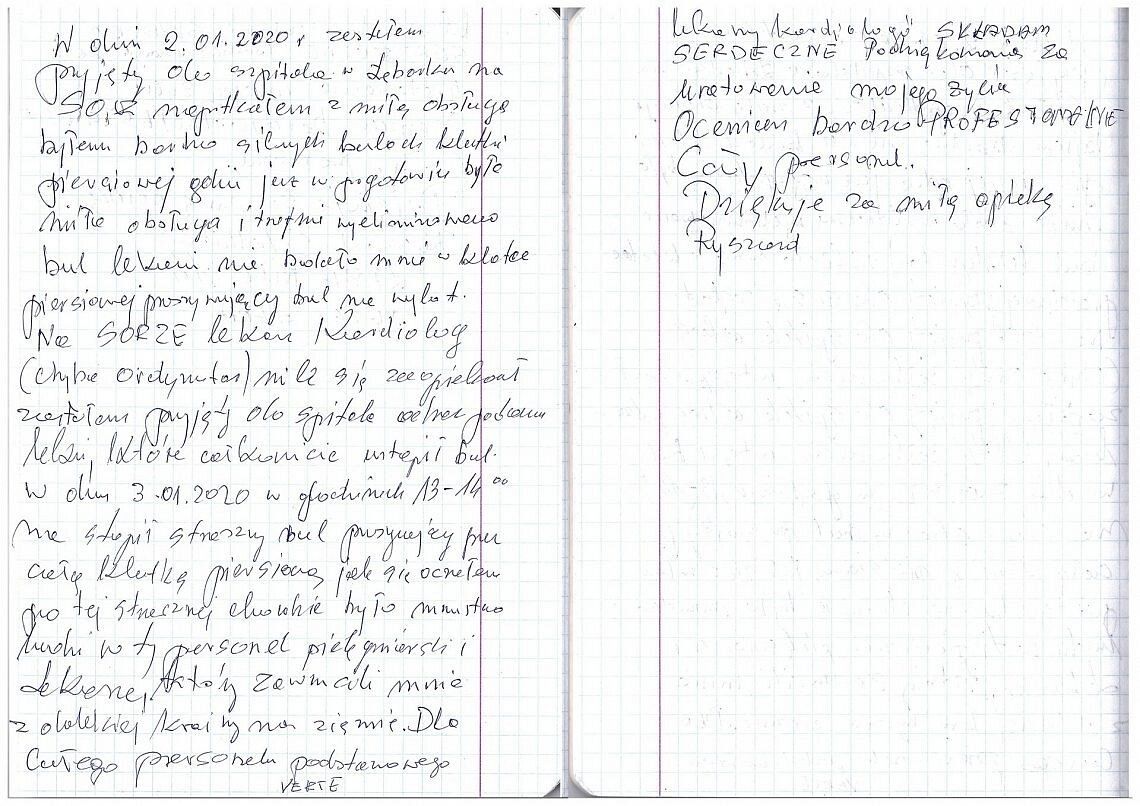 W dniu 2.01.2020 r zostałem
przyjęty do szpitala w Lęborku na
SOR napotkałem z miłą obsługą
byłem bardzo silnych bulach klatki
piersiowej gdzie już w pogotowiu była
miła obsługa i trafnie wyeliminowano
bul lekami nie bolało mnie w klatce
piersiowej przeszywający bul na wylot.
Na SORZE lekarz Kardiolog
(chyba Ordynator) mile się zaopiekował
zostałem przyjęty do szpitala podano
leki, które całkowicie ustąpił bul.
W dniu 3.01.2020 w godzinach 13-14 00
na stąpił straszny bul przeszywający przez
całą klatkę piersiową jak się ocnełem
po tej strasznej chorobie było mnustwo
ludzi w ty personel pielęgniarski i
Lekarzej, którzy zawrucili mnie
z dalekiej krainy na ziemię. Dla
Całego personelu podstawowego
VERTE
lekarzy kardiologó SKŁADAM
SERDECZNE Podziękowania za
uratowanie mojego życia
Oceniam bardzo PROFESIONALNIE
Cały personel.
Dziękuje za miłą opiekę
Ryszard